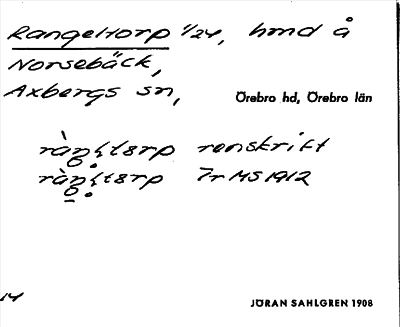 Rangeltorp 1/24, hmd å
Norsebäck,
Axbergs sn,
Örebro hd, Örebro län
renskrift
7r MS 1912
14
JÖRAN SAHLGREN 1908